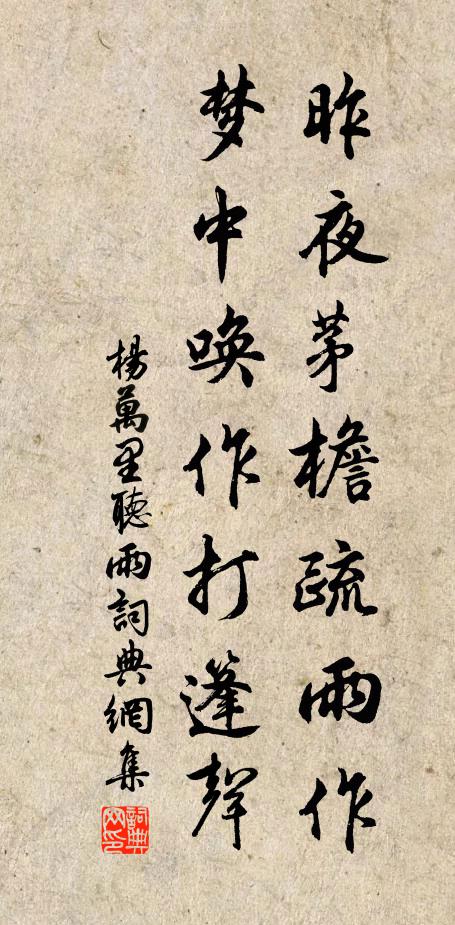 昨夜茅檐疏雨作
梦中唤作打篷聲
楊萬里聽雨詞典網集
詞典网印